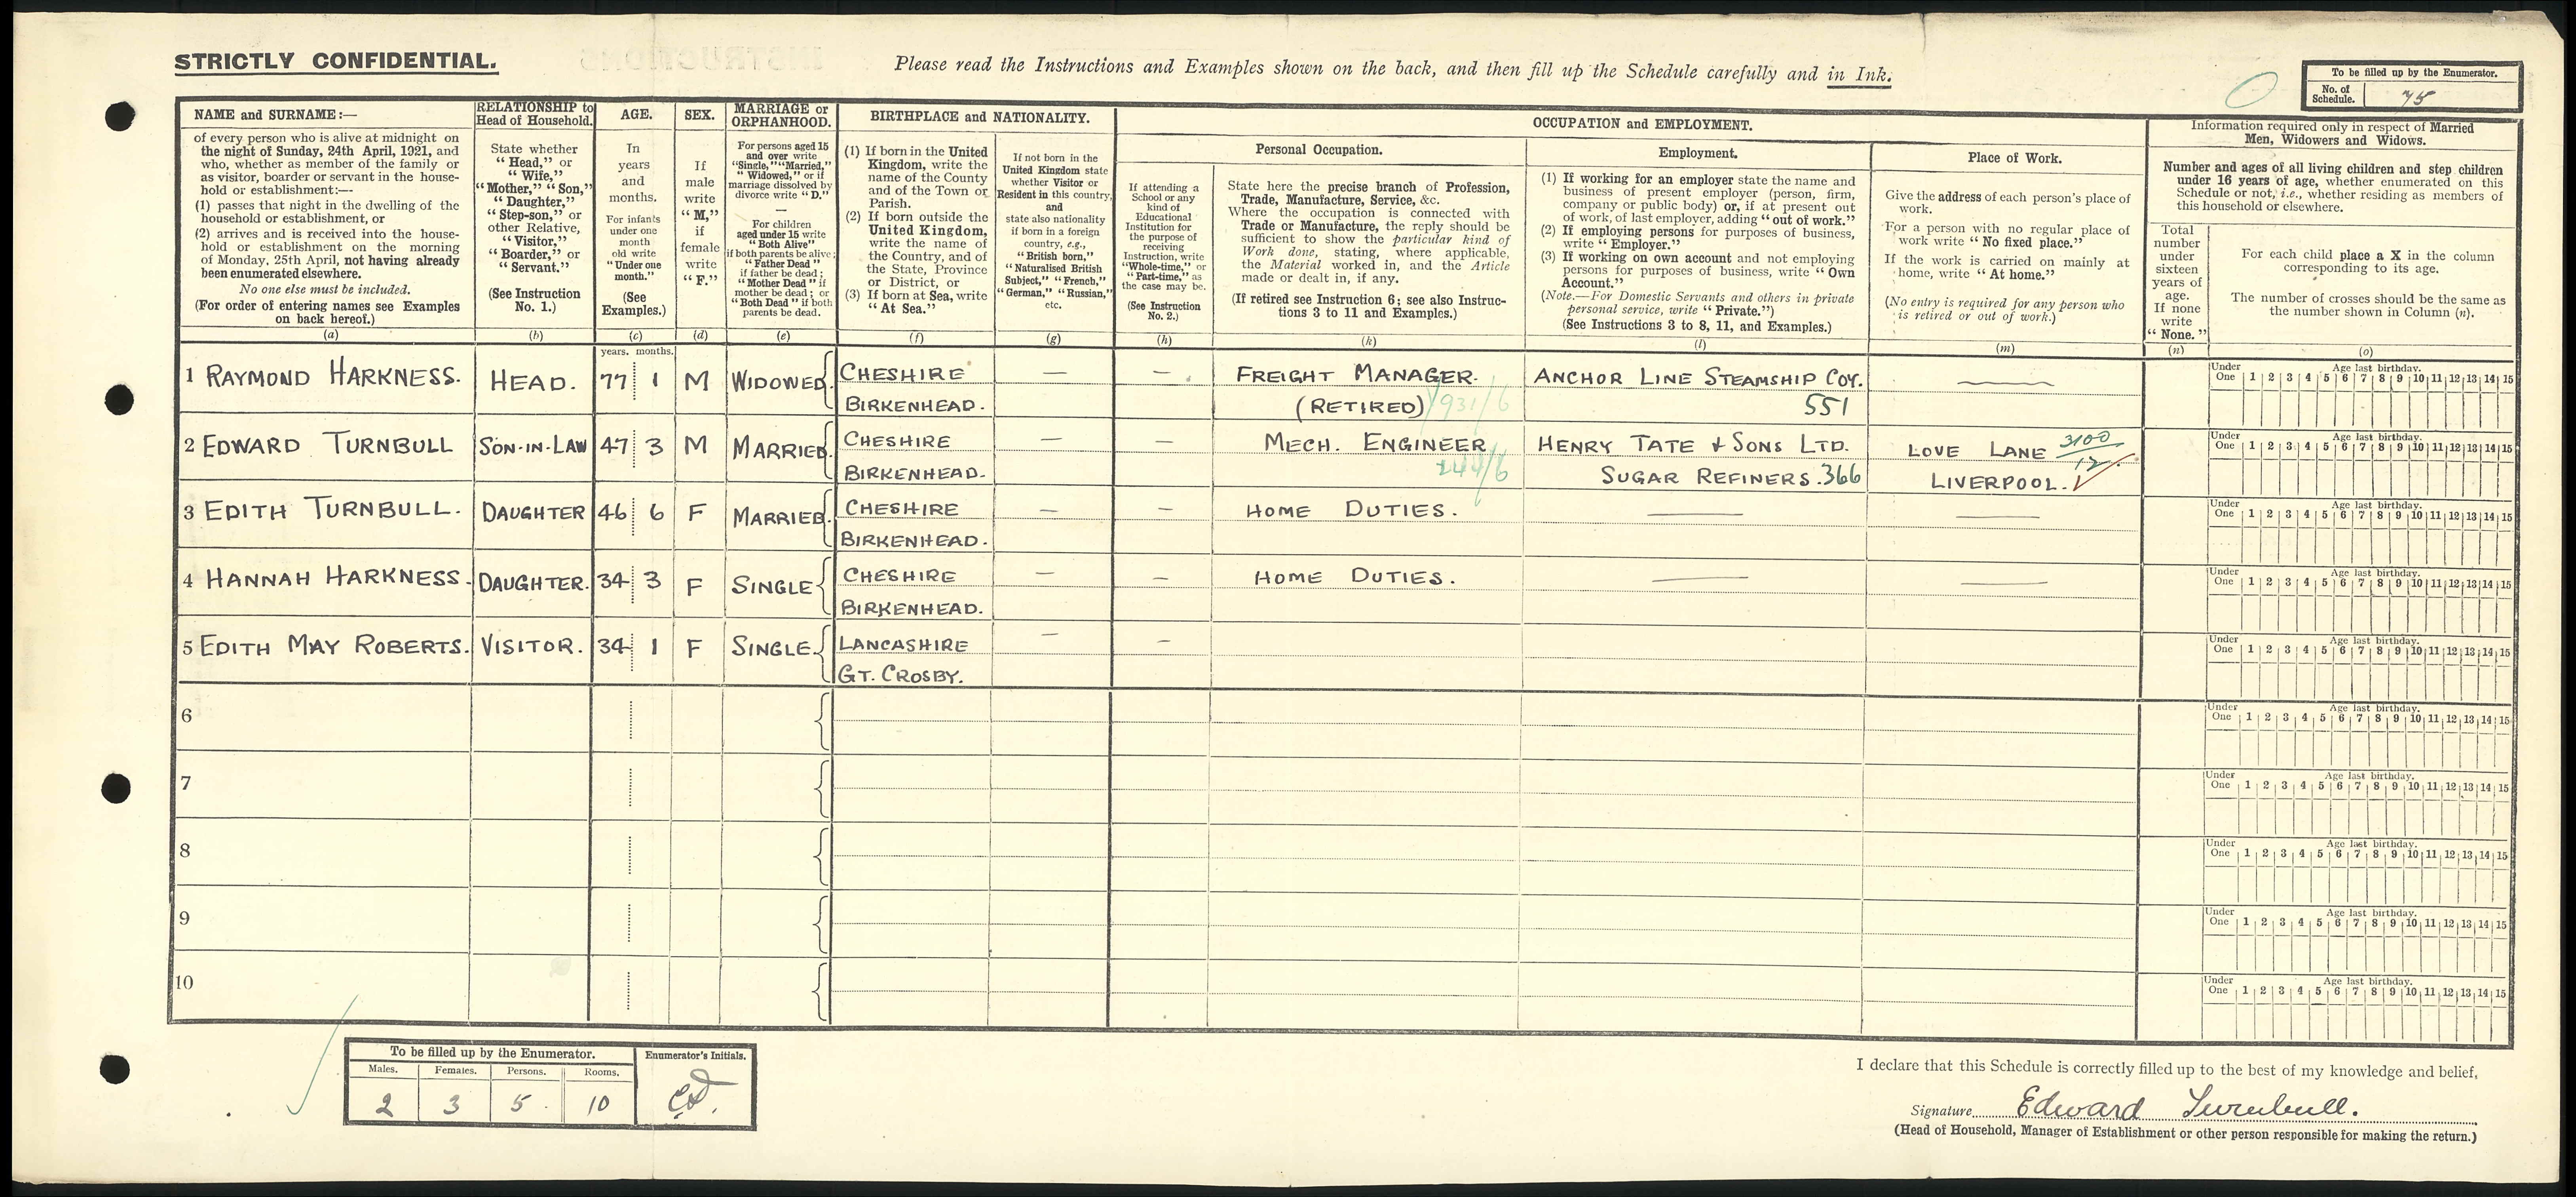 STRICTLY CONFIDENTIAL.
Please read the Instructions and Examples shown on the back, and then fill up the Schedule carefully and in Ink.
To be filled up by the Enumerator.
No. of Schedule. 75
NAME and SURNAME:—
of every person who is alive at midnight on
the night of Sunday, 24th April, 1921, and
who, whether as member of the family or
as visitor, boarder or servant in the house-
hold or establishment:—
(1) passes that night in the dwelling of the
household or establishment, or
(2) arrives and is received into the house-
hold or establishment on the morning
of Monday, 25th April, not having already
been enumerated elsewhere.
No one else must be included.
(For order of entering names see Examples
on back hereof.)
(a)
RELATIONSHIP to
Head of Household.
State whether
"Head," or
"Wife,"
"Mother," "Son,"
"Daughter,"
"Step-son," or
other Relative,
"Visitor,"
"Boarder," or
"Servant."
(See Instruction
No. 1.)
(b)
AGE.
In
years
and
months.
For infants
under one
month
old write
"Under one
month."
(See
Examples.)
(c)
SEX.
If
male
write
"M,"
if
female
write
"F."
(d)
MARRIAGE or
ORPHANHOOD.
For persons aged 15
and over write
"Single," "Married,"
"Widowed," or if
marriage dissolved by
divorce write "D."
—
For children
aged under 15 write
"Both Alive"
if both parents be alive;
"Father Dead"
if father be dead;
"Mother Dead" if
mother be dead; or
"Both Dead" if both
parents be dead.
(e)
BIRTHPLACE and NATIONALITY.
(1) If born in the United
Kingdom, write the
name of the County
and of the Town or
Parish.
(2) If born outside the
United Kingdom,
write the name of
the Country, and of
the State, Province
or District, or
(3) If born at Sea, write
"At Sea."
(f)
If not born in the
United Kingdom state
whether Visitor or
Resident in this country,
and
state also nationality
if born in a foreign
country, e.g.,
"British born,"
"Naturalised British
Subject," "French,"
"German," "Russian,"
etc.
(g)
OCCUPATION and EMPLOYMENT.
If attending a
School or any
kind of
Educational
Institution for
the purpose of
receiving
Instruction, write
"Whole-time," or
"Part-time," as
the case may be.
(See Instruction
No. 2.)
(h)
Personal Occupation.
State here the precise branch of Profession,
Trade, Manufacture, Service, &c.
Where the occupation is connected with
Trade or Manufacture, the reply should be
sufficient to show the particular kind of
Work done, stating, where applicable,
the Material worked in, and the Article
made or dealt in, if any.
(If retired see Instruction 6; see also Instruc-
tions 3 to 11 and Examples.)
(k)
Employment.
(1) If working for an employer state the name and
business of present employer (person, firm,
company or public body) or, if at present out
of work, of last employer, adding "out of work."
(2) If employing persons for purposes of business,
write "Employer."
(3) If working on own account and not employing
persons for purposes of business, write "Own
Account."
(Note.—For Domestic Servants and others in private
personal service, write "Private.")
(See Instructions 3 to 8, 11, and Examples.)
(l)
Place of Work.
Give the address of each person's place of
work.
For a person with no regular place of
work write "No fixed place."
If the work is carried on mainly at
home, write "At home."
(No entry is required for any person who
is retired or out of work.)
(m)
Information required only in respect of Married
Men, Widowers and Widows.
Number and ages of all living children and step children
under 16 years of age, whether enumerated on this
Schedule or not, i.e., whether residing as members of
this household or elsewhere.
Total
number
under
sixteen
years of
age.
If none
write
"None."
(n)
For each child place a X in the column
corresponding to its age.
The number of crosses should be the same as
the number shown in Column (n).
(o)
years. months.
1 RAYMOND HARKNESS. HEAD. 77 1 M WIDOWED. CHESHIRE — — FREIGHT MANAGER. ANCHOR LINE STEAMSHIP COY. —
BIRKENHEAD. (RETIRED) 931/6 551
Under One 1 2 3 4 5 6 7 8 9 10 11 12 13 14 15 Age last birthday.
2 EDWARD TURNBULL SON-IN-LAW 47 3 M MARRIED. CHESHIRE — — MECH. ENGINEER HENRY TATE & SONS LTD. LOVE LANE 3100
BIRKENHEAD. 244/6 SUGAR REFINERS. 366 LIVERPOOL. 12
Under One 1 2 3 4 5 6 7 8 9 10 11 12 13 14 15 Age last birthday.
3 EDITH TURNBULL. DAUGHTER 46 6 F MARRIED. CHESHIRE — — HOME DUTIES. — —
BIRKENHEAD.
Under One 1 2 3 4 5 6 7 8 9 10 11 12 13 14 15 Age last birthday.
4 HANNAH HARKNESS. DAUGHTER. 34 3 F SINGLE CHESHIRE — — HOME DUTIES. — —
BIRKENHEAD.
Under One 1 2 3 4 5 6 7 8 9 10 11 12 13 14 15 Age last birthday.
5 EDITH MAY ROBERTS. VISITOR. 34 1 F SINGLE. LANCASHIRE — —
GT. CROSBY.
Under One 1 2 3 4 5 6 7 8 9 10 11 12 13 14 15 Age last birthday.
6
Under One 1 2 3 4 5 6 7 8 9 10 11 12 13 14 15 Age last birthday.
7
Under One 1 2 3 4 5 6 7 8 9 10 11 12 13 14 15 Age last birthday.
8
Under One 1 2 3 4 5 6 7 8 9 10 11 12 13 14 15 Age last birthday.
9
Under One 1 2 3 4 5 6 7 8 9 10 11 12 13 14 15 Age last birthday.
10
Under One 1 2 3 4 5 6 7 8 9 10 11 12 13 14 15 Age last birthday.
To be filled up by the Enumerator. Enumerator's Initials.
Males. Females. Persons. Rooms.
2 3 5 10
I declare that this Schedule is correctly filled up to the best of my knowledge and belief,
Signature Edward Turnbull.
(Head of Household, Manager of Establishment or other person responsible for making the return.)